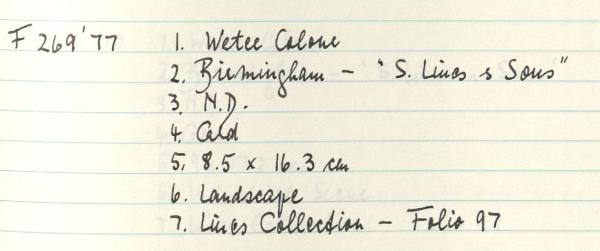 F 269'77 1. Water Colour
2. Birmingham - "S. Lines & Sons"
3. N.D.
4. Card
5. 8.5 x 16.3 cm
6. Landscape
7. Lines Collection - Folio 97